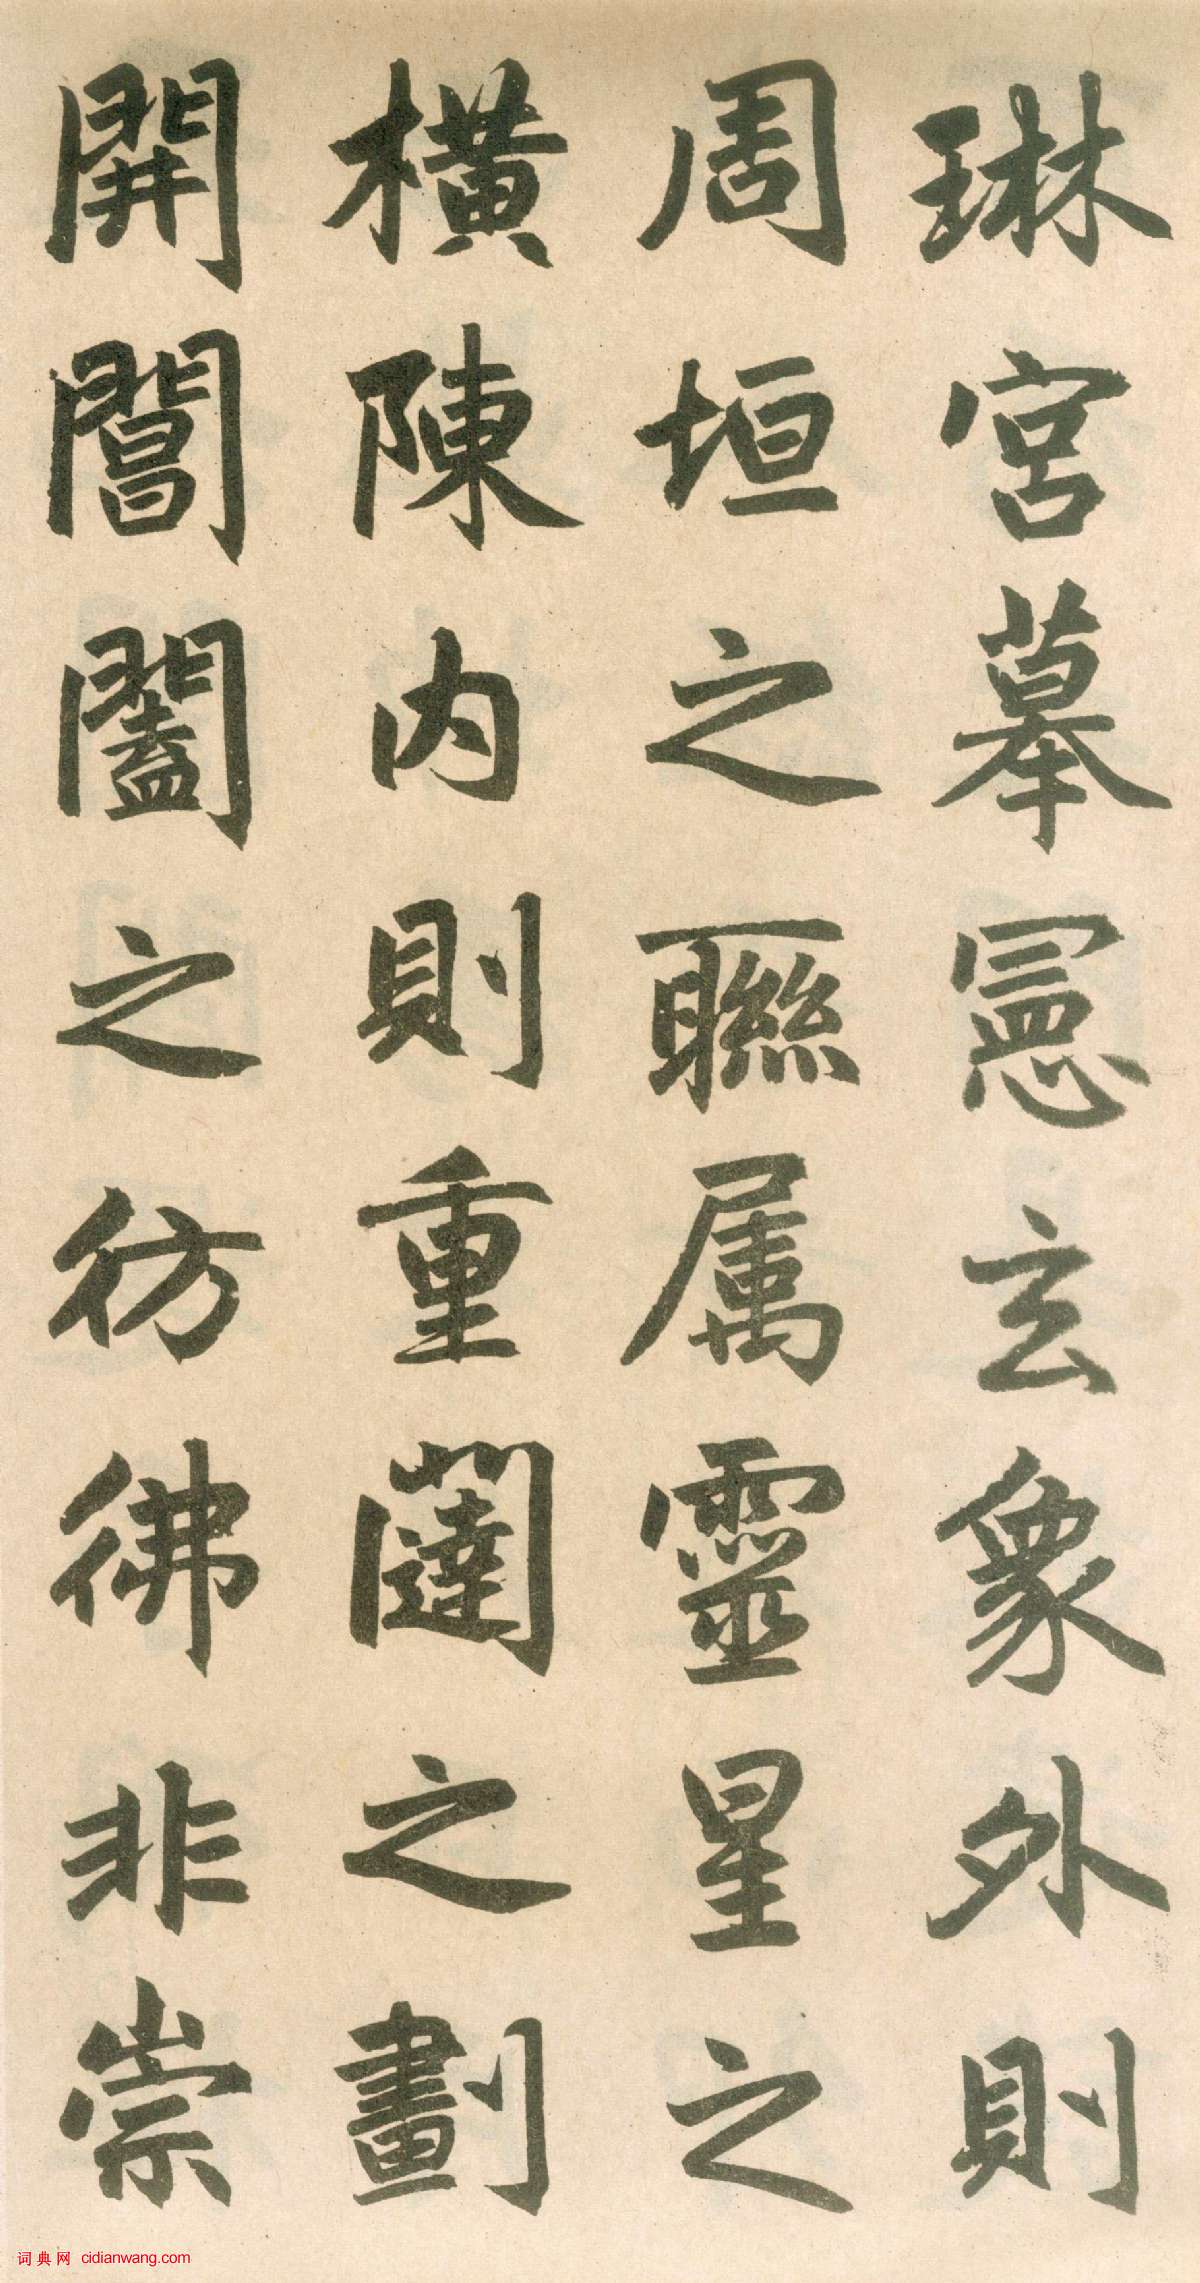 琳宮摹憲玄象外則
周垣之聯属靈星之
橫陳内則重闥之劃
開閶闔之彷彿非崇
词典网 cidianwang.com